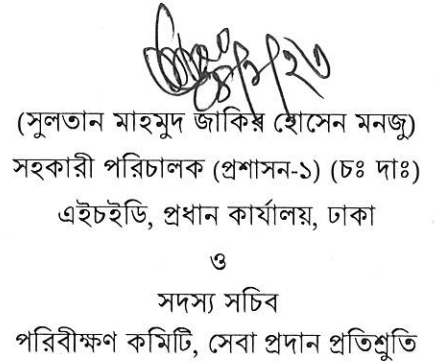 ০৪/১/২৩
(সুলতান মাহমুদ জাকির হোসেন মনজু)
সহকারী পরিচালক (প্রশাসন-১) (চঃ দাঃ)
এইচইডি, প্রধান কার্যালয়, ঢাকা
ও
সদস্য সচিব
পরিবীক্ষণ কমিটি, সেবা প্রদান প্রতিশ্রুতি